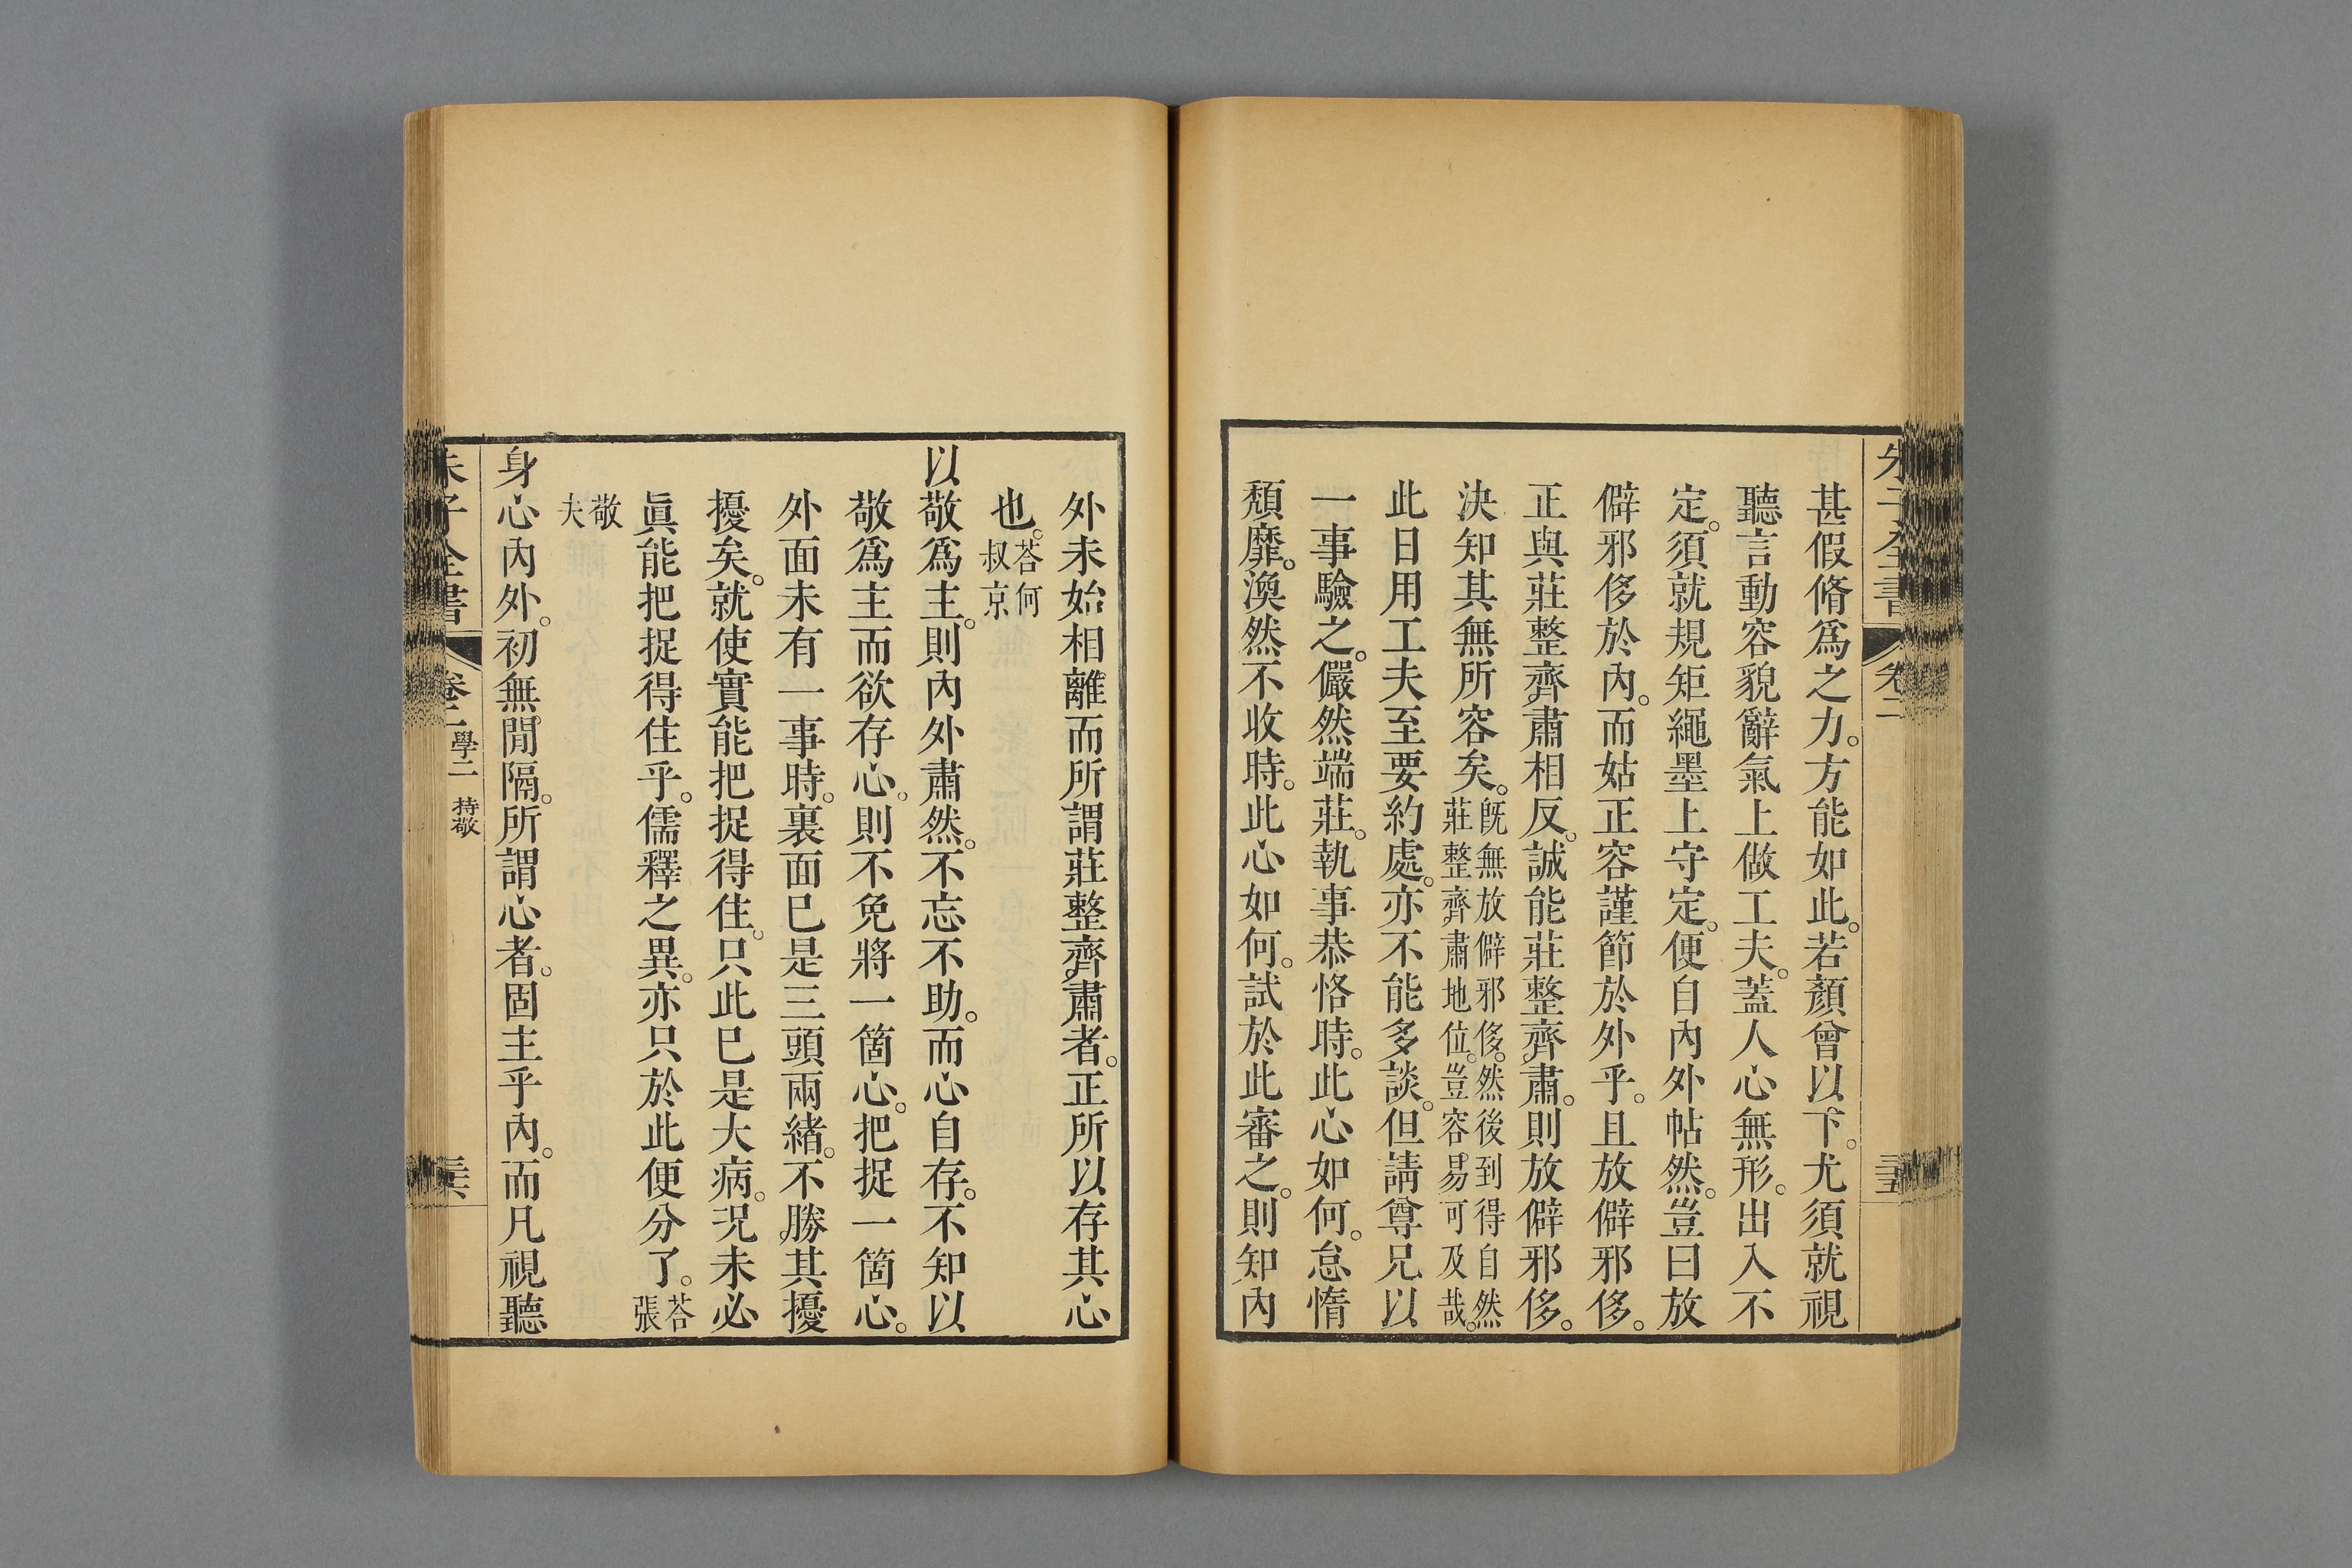 朱子全書 卷二 三五
甚假脩爲之力。方能如此。若顏曾以下。尤須就視
聽言動容貌辭氣上做工夫。蓋人心無形。出入不
定。須就規矩繩墨上守定。便自內外帖然。豈曰放
僻邪侈於內。而姑正容謹節於外乎。且放僻邪侈。
正與莊整齊肅相反。誠能莊整齊肅。則放僻邪侈。
決知其無所容矣。旣無放僻邪侈。然後到得自然
莊整齊肅地位。豈容易可及哉。
此日用工夫至要約處。亦不能多談。但請尊兄以
一事驗之。儼然端莊。執事恭恪時。此心如何。怠惰
頹靡。渙然不收時。此心如何。試於此審之。則知內
外未始相離而所謂莊整齊肅者。正所以存其心
也。荅何
叔京
以敬爲主。則內外肅然。不忘不助。而心自存。不知以
敬爲主而欲存心。則不免將一箇心。把捉一箇心。
外面未有一事時。裏面已是三頭兩緒。不勝其擾
擾矣。就使實能把捉得住。只此已是大病。況未必
眞能把捉得住乎。儒釋之異。亦只於此便分了。荅
張
敬
夫
身心內外。初無閒隔。所謂心者。固主乎內。而凡視聽
朱子全書 卷二 學二 持敬 三六